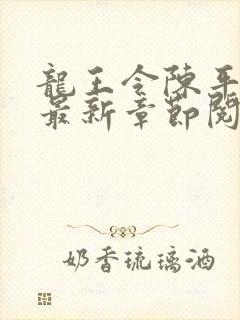 龍王令陳平
最新章節閱
奶香琉璃酒